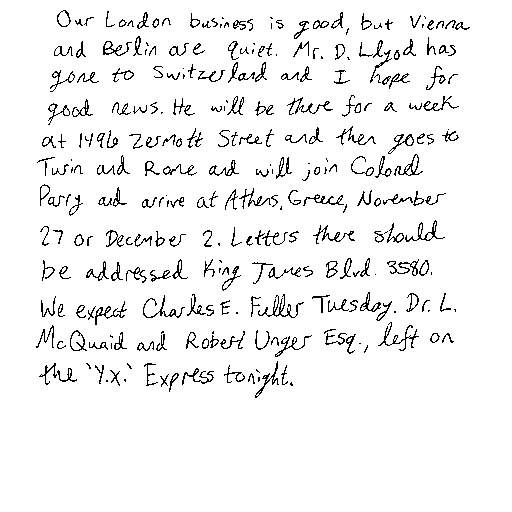 Our London business is good, but Vienna
and Berlin are quiet. Mr. D. Llyod has
gone to Switzerland and I hope for
good news. He will be there for a week
at 1496 Zermott Street and then goes to
Turin and Rome and will join Colonel
Parry and arrive at Athens, Greece, November
27 or December 2. Letters there should
be addressed King James Blvd. 3580.
We expect Charles E. Fuller Tuesday. Dr. L.
McQuaid and Robert Unger Esq., left on
the 'Y.X.' Express tonight.